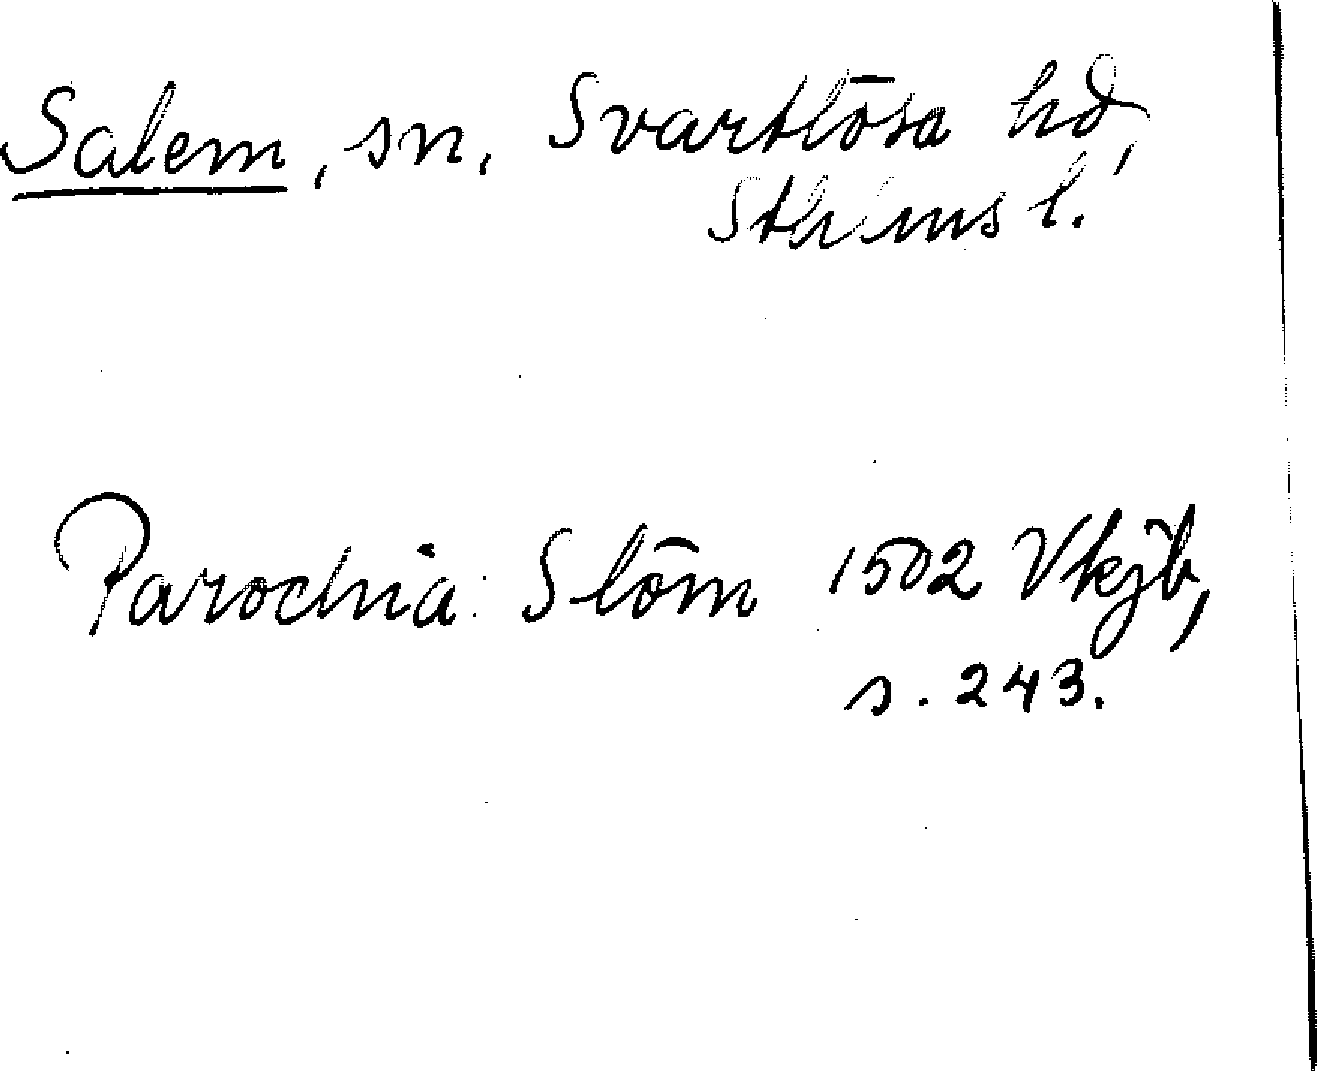 Salem, sn. Svartlösa hd,
Sthlms l.
Parochia: Slöm 1502 Vkjb,
s. 243.